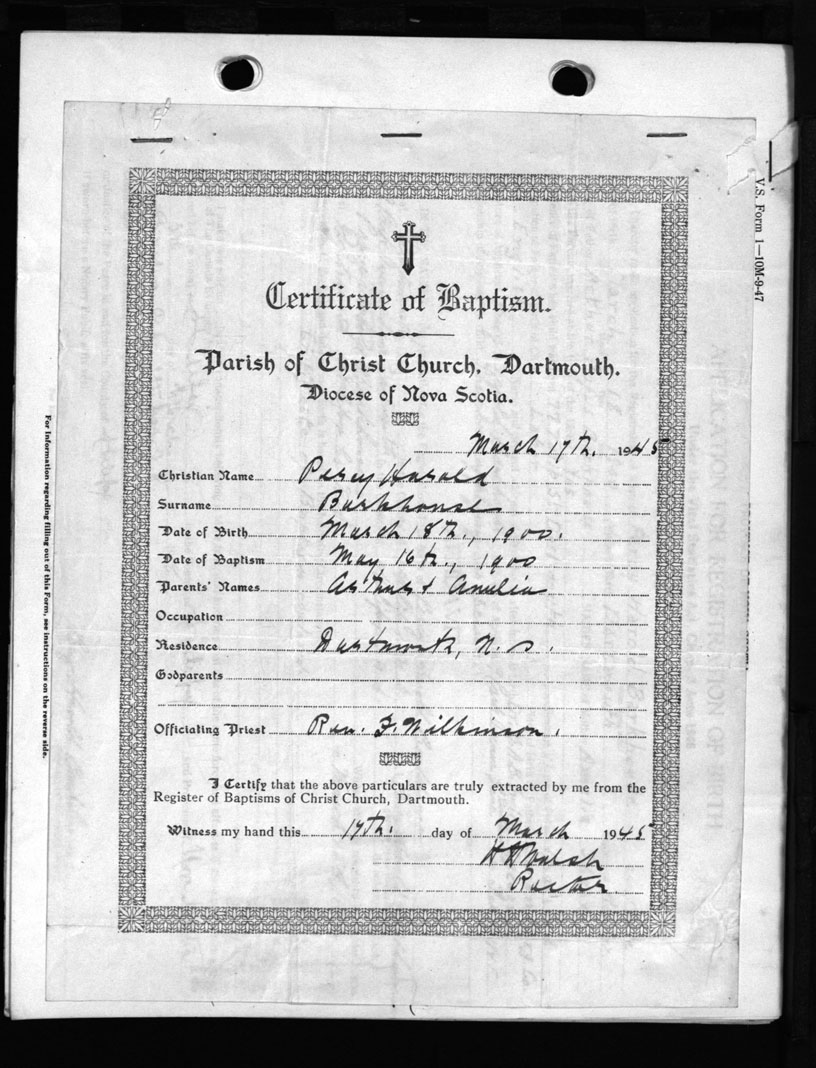 Certificate of Baptism.
Parish of Christ Church, Dartmouth.
Diocese of Nova Scotia.
March 17th. 1945
Christian Name Percy Harold
Surname Barkhouse
Date of Birth March 18th., 1900.
Date of Baptism May 16th., 1900
Parents' Names Arthur & Amelia
Occupation
Residence Dartmouth, N.S.
Godparents
Officiating Priest Rev. F. Wilkinson.
I Certify that the above particulars are truly extracted by me from the
Register of Baptisms of Christ Church, Dartmouth.
Witness my hand this 17th. day of March 1945
Walsh
Rector
V.S. Form 1—10M-9-47
For information regarding filling out of this Form, see instructions on the reverse side.